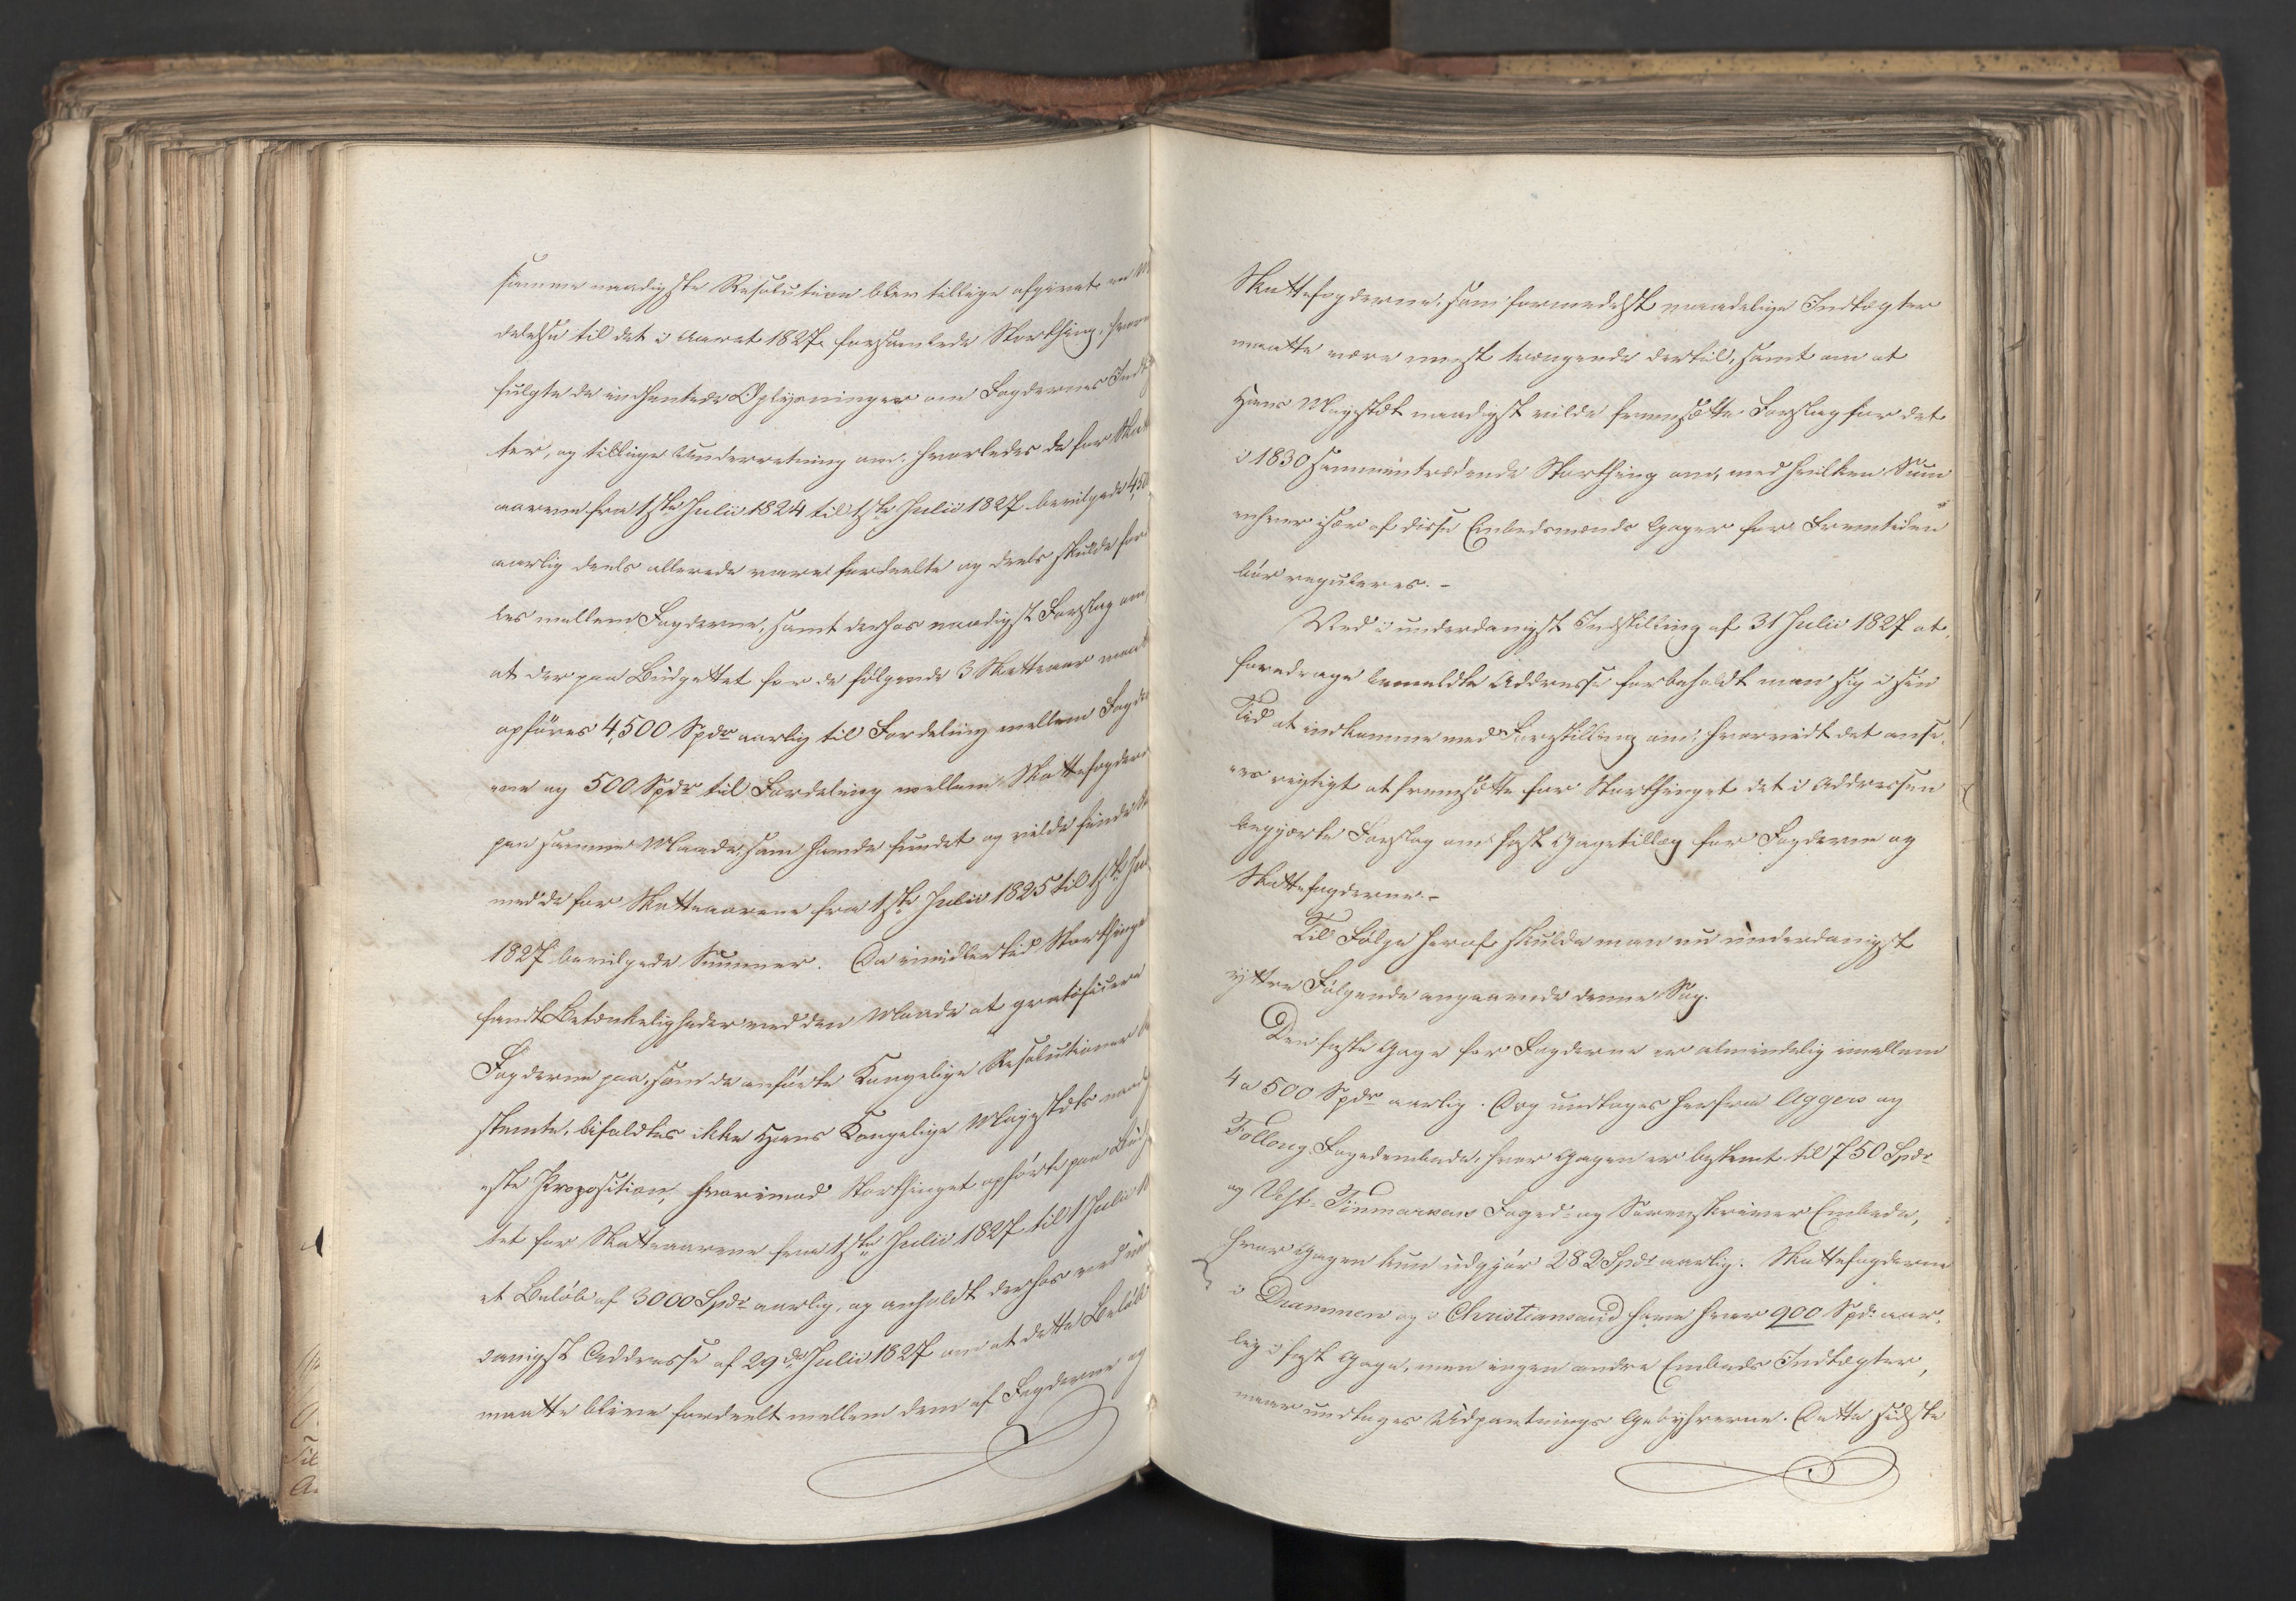 samme naadigste Resolution blev tillige afgivet en M
delelse til det i Aaret 1827 forsamlede Storthing, hvor
fulgte de indhentede Oplysninger om Fogdernes Indt
ter, og tillige Underretning om, hvorledes de for Skat
aarene fra 1ste Julii 1824 til 1ste Julii 1827 bevilgede 4,50
aarlig deels allerede vare fordeelte og deels skulde for
les mellem Fogderne, samt derhos naadigst Forslag om,
at der paa Büdgettet for de følgende 3 Skatteaar maat
opføres 4,500 Spdr aarlig til Fordeling mellem Fogde
rne og 500 Spdr til Fordeling mellem Skattefogder
paa samme Maade, som havde fundet og vilde finde St
med de for Skatteaarene fra 1ste Julii 1825 til 1ste Jul
1827 bevilgede Summer. Da imidlertid Storthinge
fandt Betænkeligheder ved den Maade at gratificere
Fogderne paa, som de anførte Kongelige Resolutioner be
stemte, bifaldtes ikke Hans Kongelige Majestæts naad
igste Proposition, hvorimod Storthinget opførte paa Büdg
tet for Skatteaarene fra 1ste Julii 1827 til 1 Julii 18
et Beløb af 3000 Spdr aarlig, og anholdt derhos ved un
danigst Addresse af 29de Julii 1827 om at dette Beløb
maatte blive fordeelt mellem dem af Fogderne og
Skattefogderne, som formedelst maadelige Indtægter
maatte være meest trængende dertil, samt om at
Hans Majestæt naadigst vilde fremsætte Forslag for det
i 1830 sammentrædende Storthing om, med hvilken Sum
enhver især af disse Embedsmænds Gager for Fremtiden
bør reguleres. -
Ved i underdanigst Indstilling af 31 Julii 1827 at
foredrage bemeldte Addresse forbeholdt man sig i sin
Tid at indkomme med Forestilling om, hvorvidt det anse-
ees rigtigt at fremsætte for Storthinget det i Addressen
begjærte Forslag om fast Gagetillæg for Fogderne og
Skattefogderne. -
Til Følge heraf skulde man nu underdanigst
yttre Følgende angaaende denne Sag.
Den faste Gage for Fogderne er almindelig imellem
4 a 500 Spdr aarlig. Dog undtages herfra Aggers og
Follong Fogedembede, hvor Gagen er bestemt til 750 Spdr
og Vest-Finmarkens Foged- og Sorenskriver Embede,
hvor Gagen kun udgjør 282 Spdr aarlig. Skattefogderne
i Drammen og i Christiansand have hver 900 Spdr aar-
lig i fast Gage, men ingen andre Embeds Indtægter,
naar undtages Udpantnings Gebyhrerne. Dette sidste